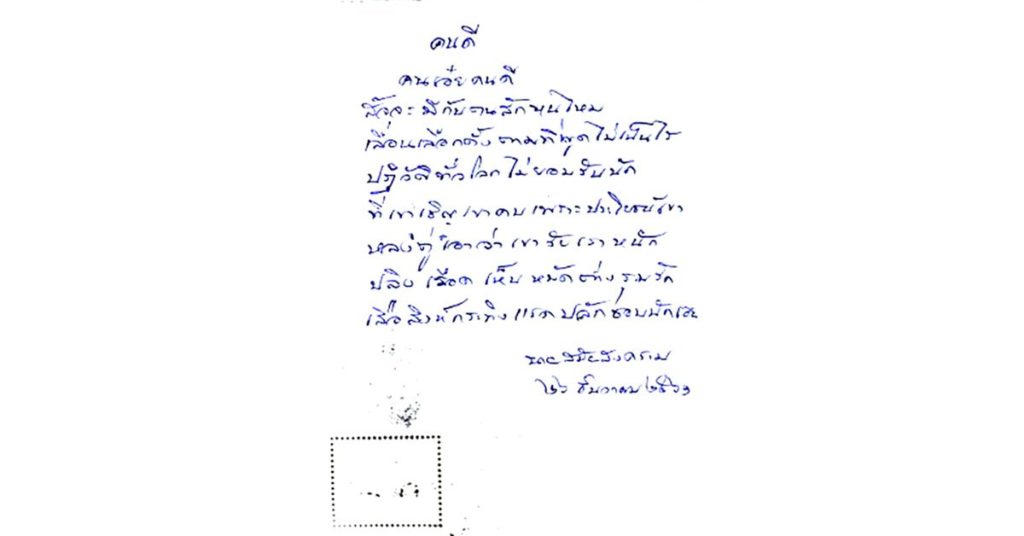 คนดี
คนเอ๋ยคนดี
สัจจะ มีกับคนสักหนไหม
เลื่อนเลือกตั้ง ตามที่พูดไม่เป็นไร
ปฏิวัติทั่วโลกไม่ยอมรับนัก
ที่เขาเชิญ เขาคบ เพราะประโยชน์เขา
หลงตู่เอาว่า เขารับเราหนัก
ปลิง เลือด เห็บ หมัด ต่างรุมรัก
เสือสิงห์กระทิงแรด ปลัก ชอบนักเฮย
๒๖ ธันวาคม ๒๕๖๑